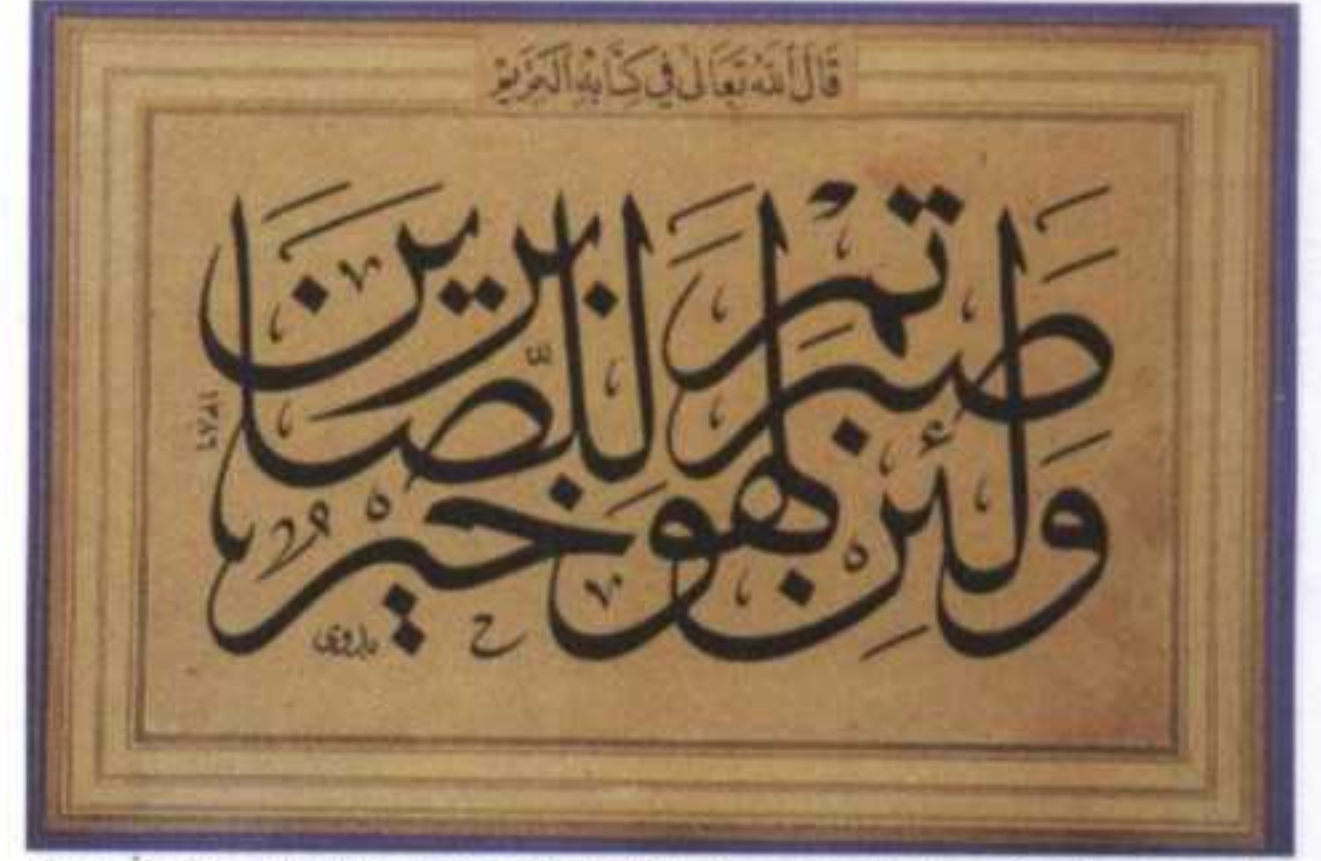 قَالَ اللهُ تَعَالَى فِي كِتَابِهِ الْكَرِيمِ
وَلَئِن صَبَرْتُمْ لَهُوَ خَيْرٌ لِّلصَّابِرِينَ